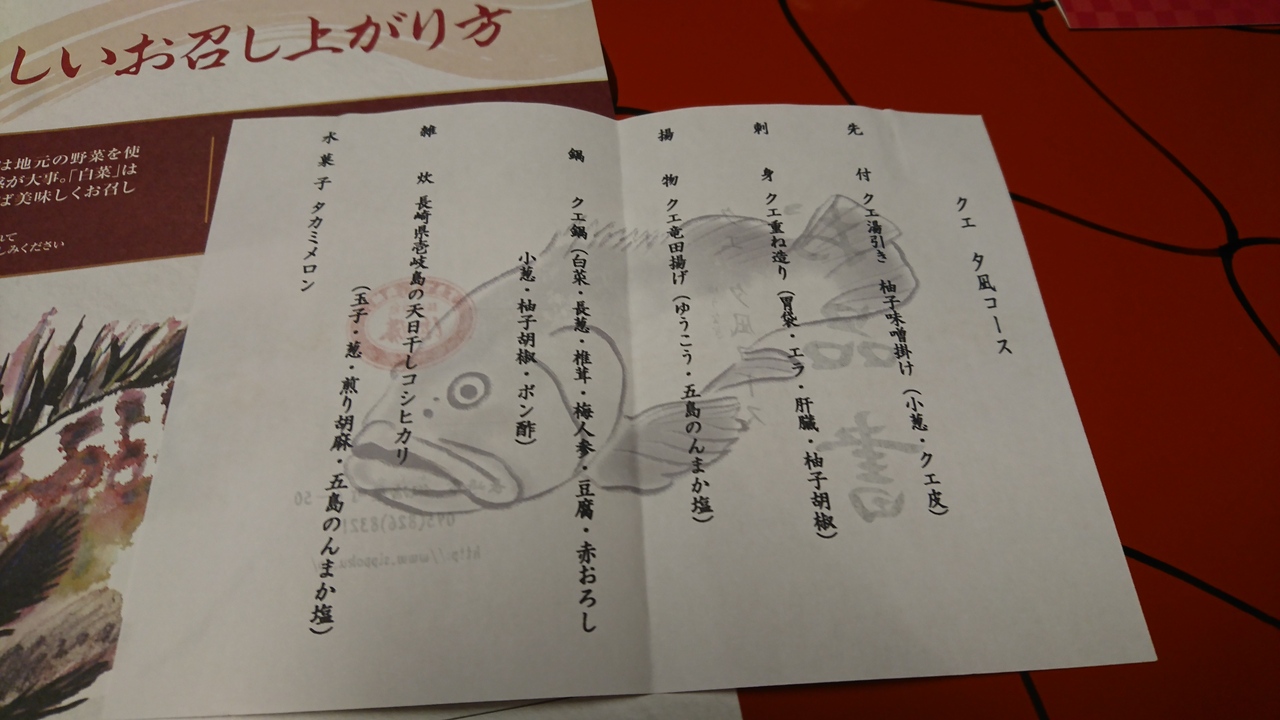 しいお召し上がり方
は地元の野菜を使
が大事。「白菜」は
ば美味しくお召し
れて
しみください
クエ 夕凪コース
先付 クエ湯引き 柚子味噌掛け（小葱・クエ皮）
刺身 クエ重ね造り（胃袋・エラ・肝臓・柚子胡椒）
揚物 クエ竜田揚げ（ゆうこう・五島のんまか塩）
鍋 クエ鍋（白菜・長葱・椎茸・梅人参・豆腐・赤おろし
小葱・柚子胡椒・ポン酢）
雑炊 長崎県壱岐島の天日干しコシヒカリ
（玉子・葱・煎り胡麻・五島のんまか塩）
水菓子 タカミメロン